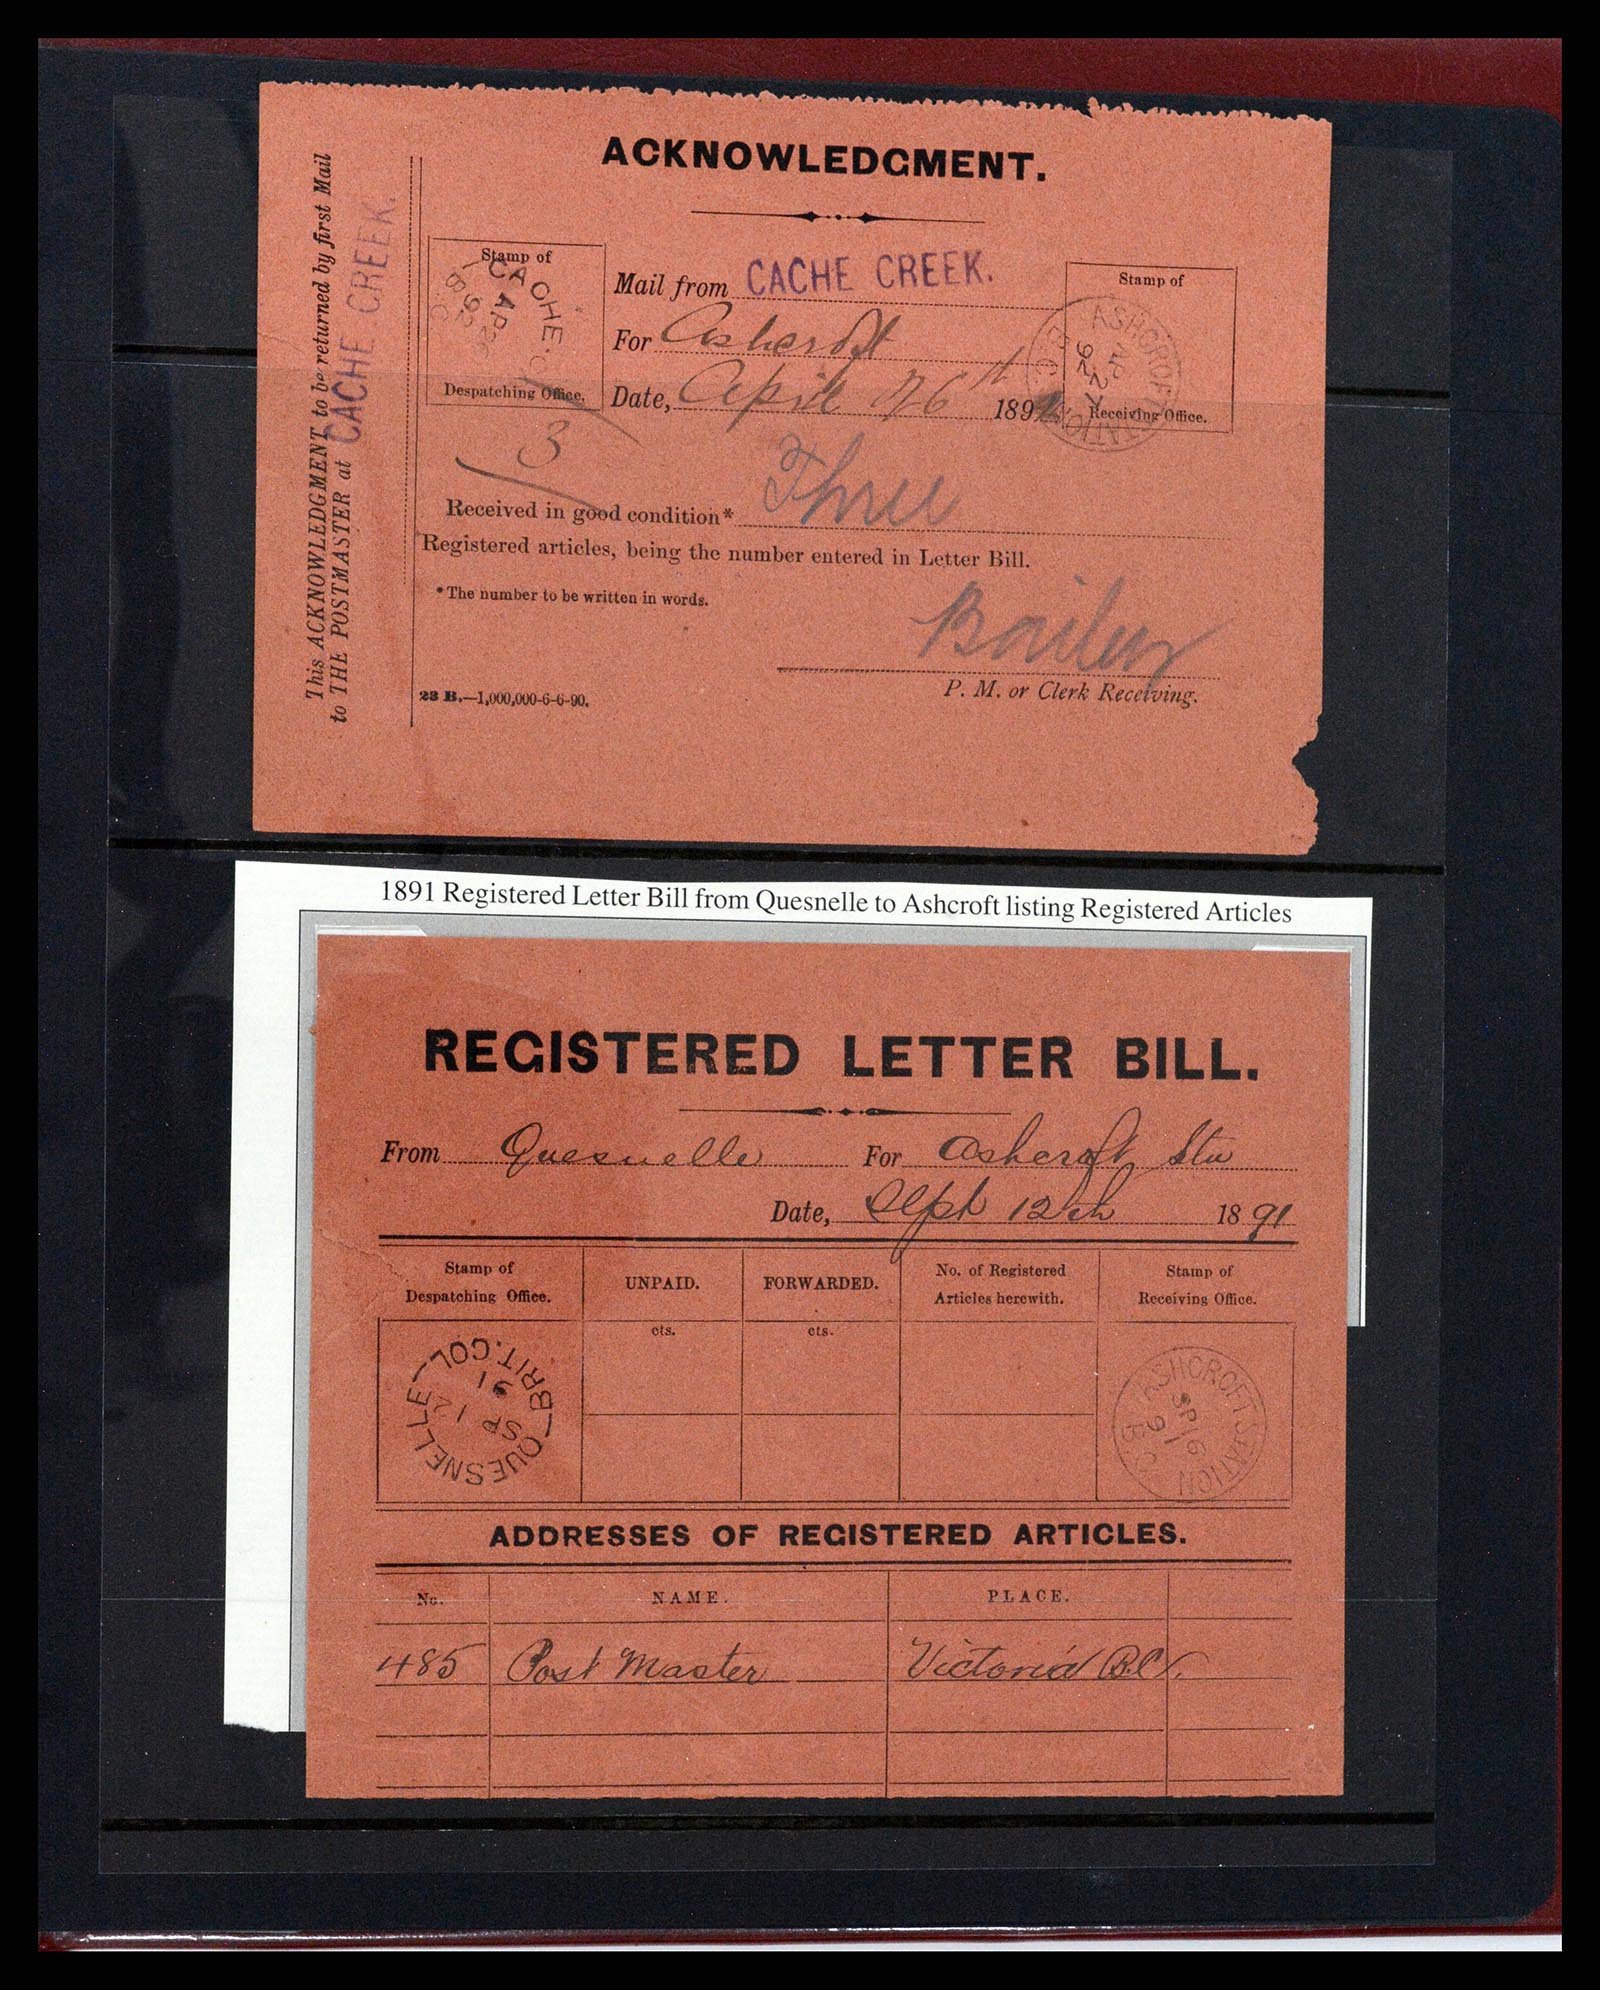 ACKNOWLEDGMENT.
This ACKNOWLEDGMENT to be returned by first Mail
to THE POSTMASTER at CACHE CREEK.
Stamp of
CACHE CREEK
AP 26
92
B.C.
Despatching Office.
Mail from CACHE CREEK.
For Ashcroft
Date, April 26th 1892
Stamp of
ASHCROFT STATION
AP 26
92
B.C.
Receiving Office.
3
Received in good condition* Three
Registered articles, being the number entered in Letter Bill.
*The number to be written in words.
Bailey
P. M. or Clerk Receiving.
23 B.—1,000,000-6-6-90.
1891 Registered Letter Bill from Quesnelle to Ashcroft listing Registered Articles
REGISTERED LETTER BILL.
From Quesnelle For Ashcroft Stn
Date, Sept 12th 1891
Stamp of
Despatching Office.
UNPAID.
FORWARDED.
No. of Registered
Articles herewith.
Stamp of
Receiving Office.
cts.
cts.
QUESNELLE
BRIT. COL
SP 12
91
ASHCROFT STATION
SP 16
91
B.C.
ADDRESSES OF REGISTERED ARTICLES.
No. NAME. PLACE.
485 Post Master Victoria B.C.